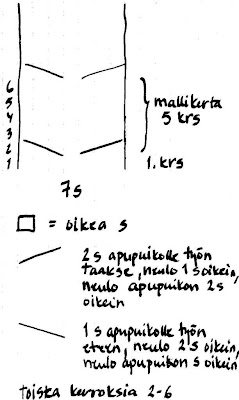 6
5
4
3
2
1
mallikerta
5 krs
1. krs
7s
= oikea s
2 s apupuikolle työn
taakse, neulo 1 s oikein,
neulo apupuikon 2 s
oikein
1 s apupuikolle työn
eteen, neulo 2 s oikein,
neulo apupuikon s oikein
Toista kerroksia 2-6